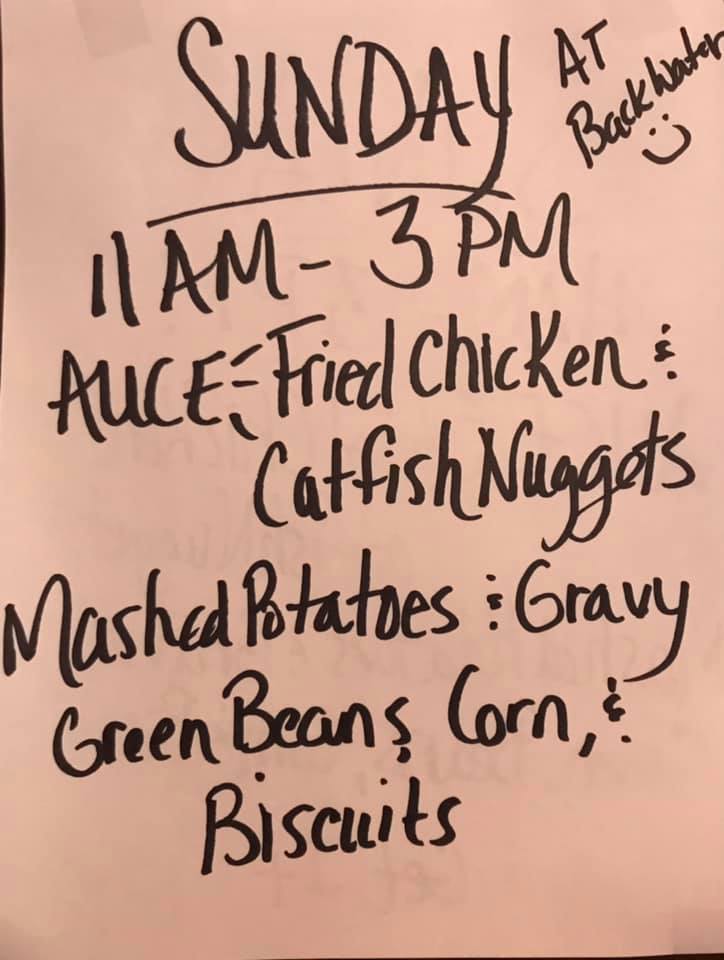 SUNDAY
AT
BackWater
11 AM - 3 PM
AUCE: Fried Chicken &
Catfish Nuggets
Mashed Potatoes & Gravy
Green Beans, Corn, &
Biscuits